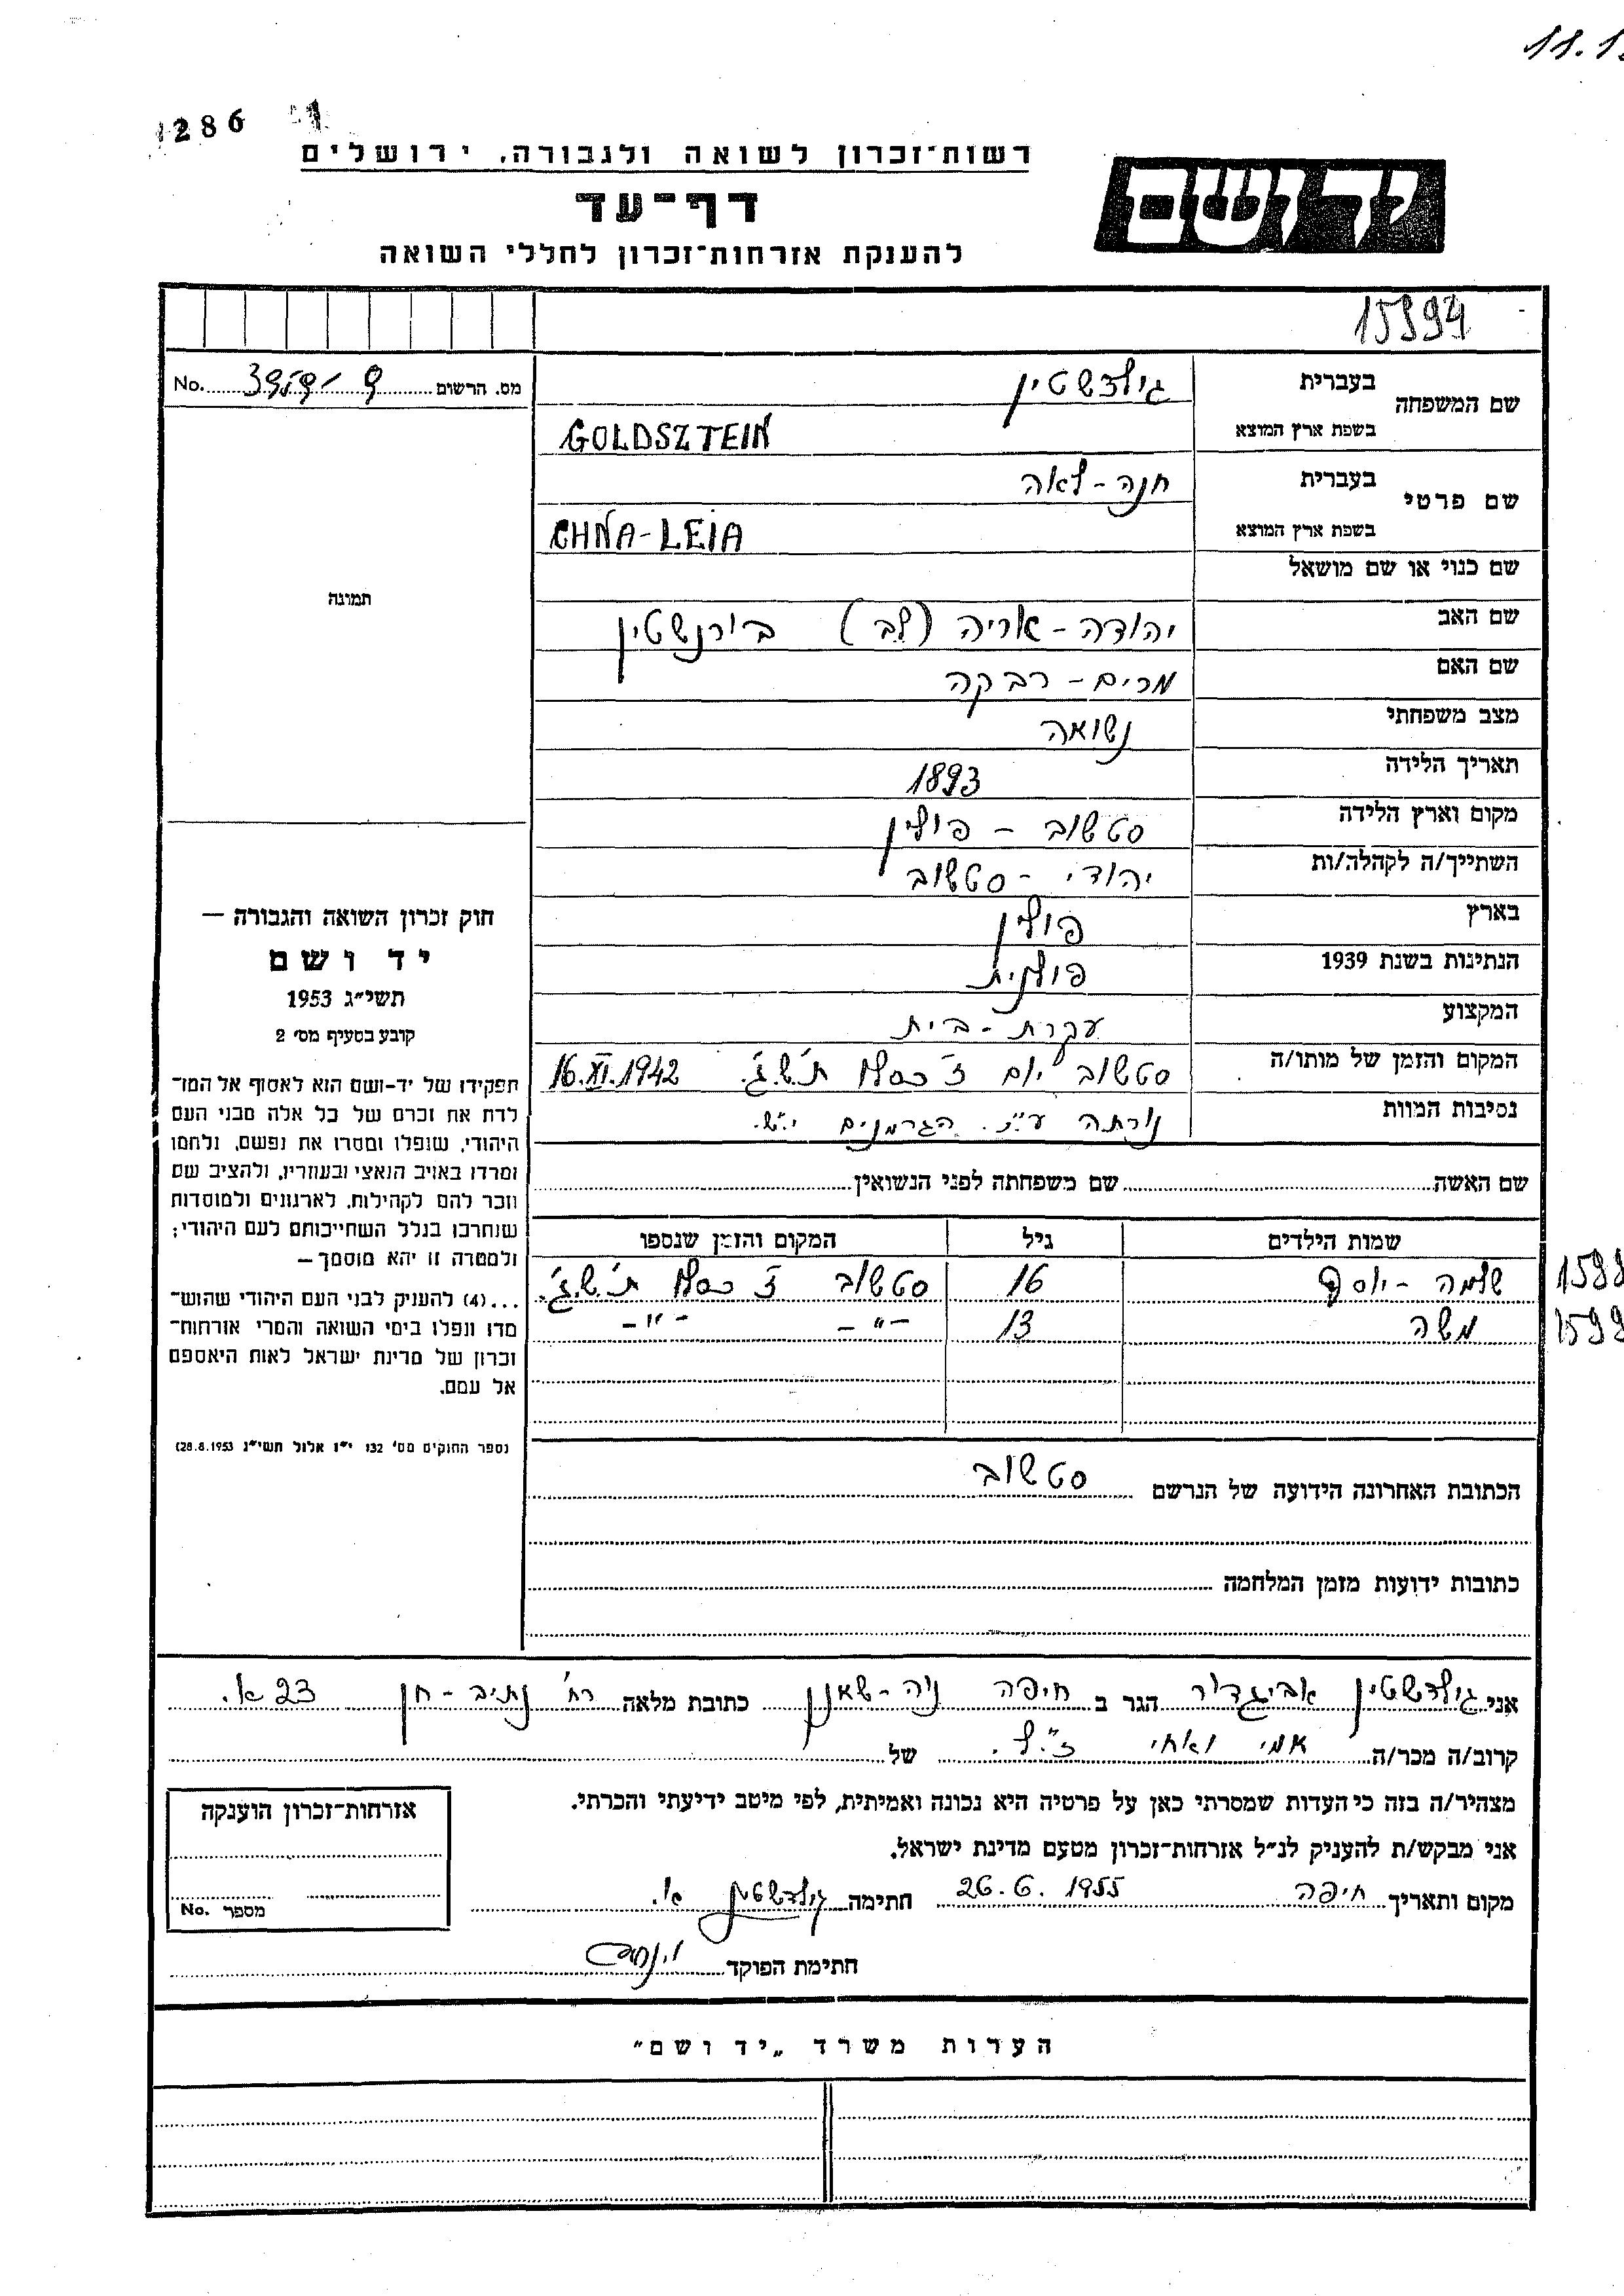 11.1
286
רשות־זכרון לשואה ולגבורה, ירושלים
ידושם
דף־עד
להענקת אזרחות־זכרון לחללי השואה
15994
שם המשפחה בעברית גולדשטין
בשפת ארץ המוצא GOLDSZTEIN
מס. הרשום No.
שם פרטי בעברית חנה - לאה
בשפת ארץ המוצא CHNA-LEIA
שם כנוי או שם מושאל
תמונה
שם האב יהודה - אריה (לב) בורנשטין
שם האם מרים - רבקה
מצב משפחתי נשואה
תאריך הלידה 1893
מקום וארץ הלידה סטשוב - פולין
השתייך/ה לקהלה/ות יהודי - סטשוב
בארץ פולין
הנתינות בשנת 1939 פולנית
המקצוע עקרת - בית
המקום והזמן של מותו/ה סטשוב יום ז' כסלו ת'ש'ג'. 16.XI.1942
נסיבות המוות נורתה ע"י הגרמנים י"ש.
חוק זכרון השואה והגבורה —
יד ושם
תשי״ג 1953
קובע בסעיף מס׳ 2
תפקידו של יד-ושם הוא לאסוף אל המו־
לדת את זכרם של כל אלה מבני העם
היהודי, שנפלו ומסרו את נפשם, נלחמו
ומרדו באויב הנאצי ובעוזריו, ולהציב שם
וזכר להם לקהילות, לארגונים ולמוסדות
שנחרבו בגלל השתייכותם לעם היהודי;
ולמטרה זו יהא מוסמך —
...(4) להעניק לבני העם היהודי שהוש־
מדו ונפלו בימי השואה והמרי אזרחות־
זכרון של מדינת ישראל לאות היאספם
אל עמם.
(ספר החוקים מס׳ 132 י״ז אלול תשי״ג 28.8.1953)
שם האשה שם משפחתה לפני הנשואין
שמות הילדים גיל המקום והזמן שנספו
שלמה - יוסף 16 סטשוב ז' כסלו ת'ש'ג'.
משה 13 -"- -"-
הכתובת האחרונה הידועה של הנרשם סטשוב
כתובות ידועות מזמן המלחמה
אני גולדשטין אביגדור הגר ב חיפה נוה - שאנן כתובת מלאה רח' נתיב - חן 23 א.
קרוב/ה מכר/ה אמי ואחי ז"ל. של
מצהיר/ה בזה כי העדות שמסרתי כאן על פרטיה היא נכונה ואמיתית, לפי מיטב ידיעתי והכרתי.
אני מבקש/ת להעניק לנ״ל אזרחות־זכרון מטעם מדינת ישראל.
מקום ותאריך חיפה 26.6.1955 חתימה גולדשטין א.
חתימת הפוקד
אזרחות־זכרון הוענקה
מספר No.
הערות משרד „יד ושם״